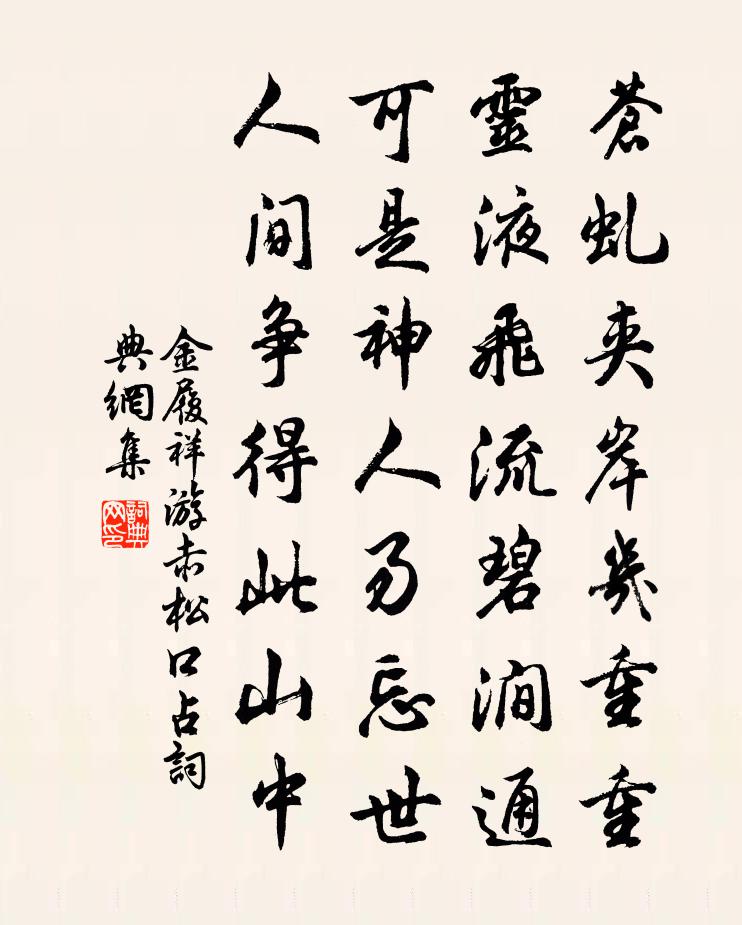 蒼虬夾岸幾重重
靈液飛流碧澗通
可是神人乃忘世
人間争得此山中
金履祥游赤松口占詞
典網集
詞典
网印